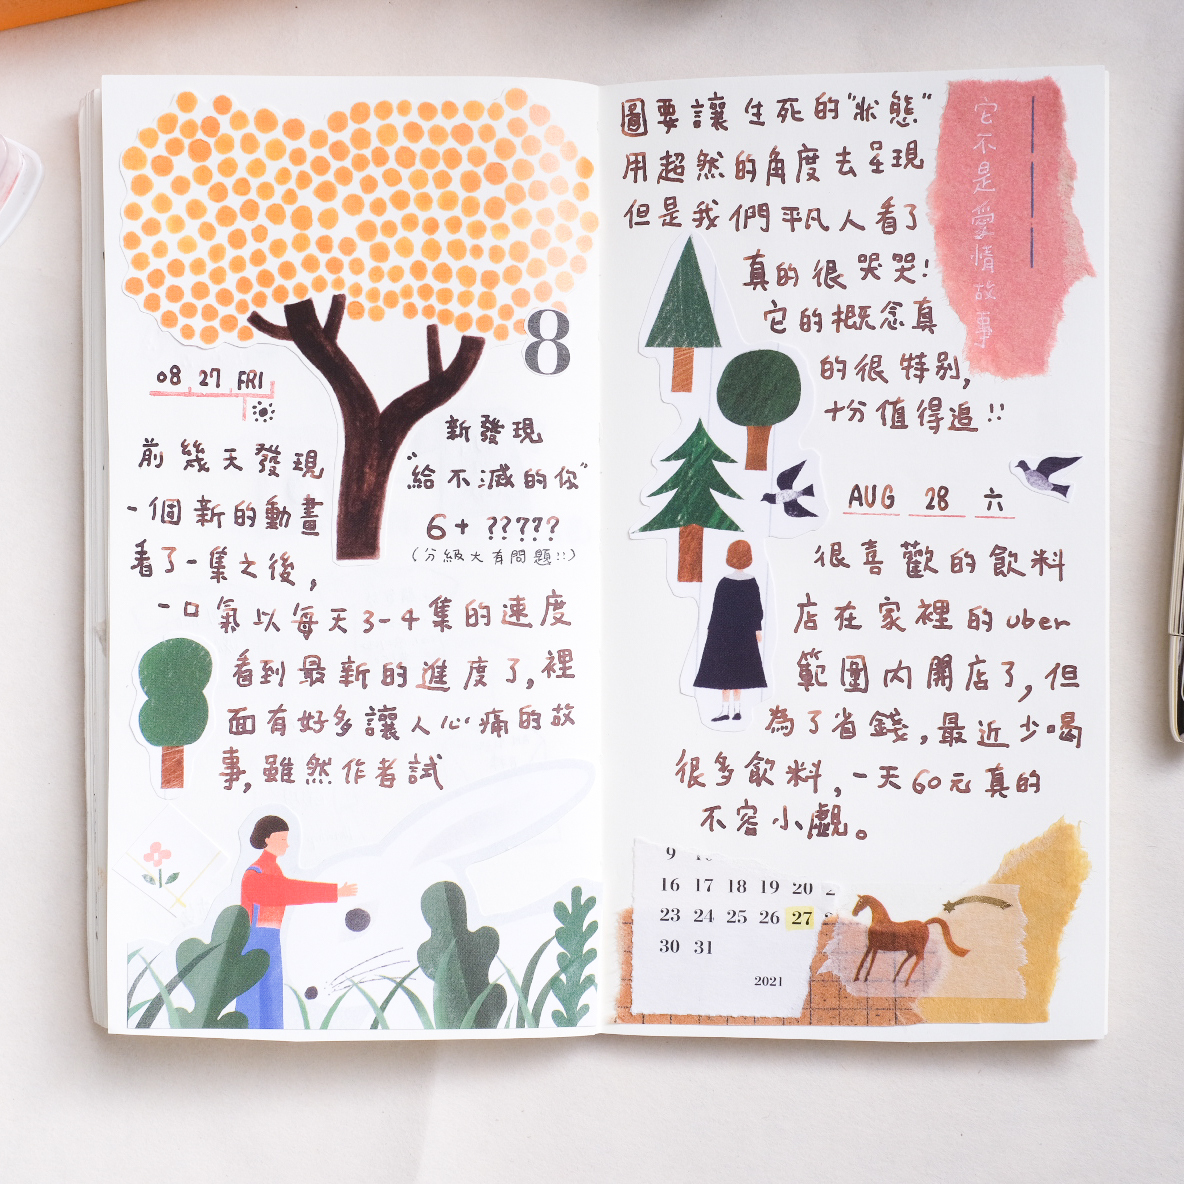 8
08 27 FRI
前幾天發現
一個新的動畫
看了一集之後,
一口氣以每天3-4集的速度
看到最新的進度了,裡
面有好多讓人心痛的故
事,雖然作者試
新發現
"給不滅的你"
6+ ?????
(分級大有問題!!)
圖要讓生死的"狀態"
用超然的角度去呈現
但是我們平凡人看了
真的很哭哭!
它的概念真
的很特別,
十分值得追!!
它不是愛情故事
AUG 28 六
很喜歡的飲料
店在家裡的uber
範圍內開店了,但
為了省錢,最近少喝
很多飲料,一天60元真的
不容小覷。
9
16 17 18 19 20 2
23 24 25 26 27
30 31
2021